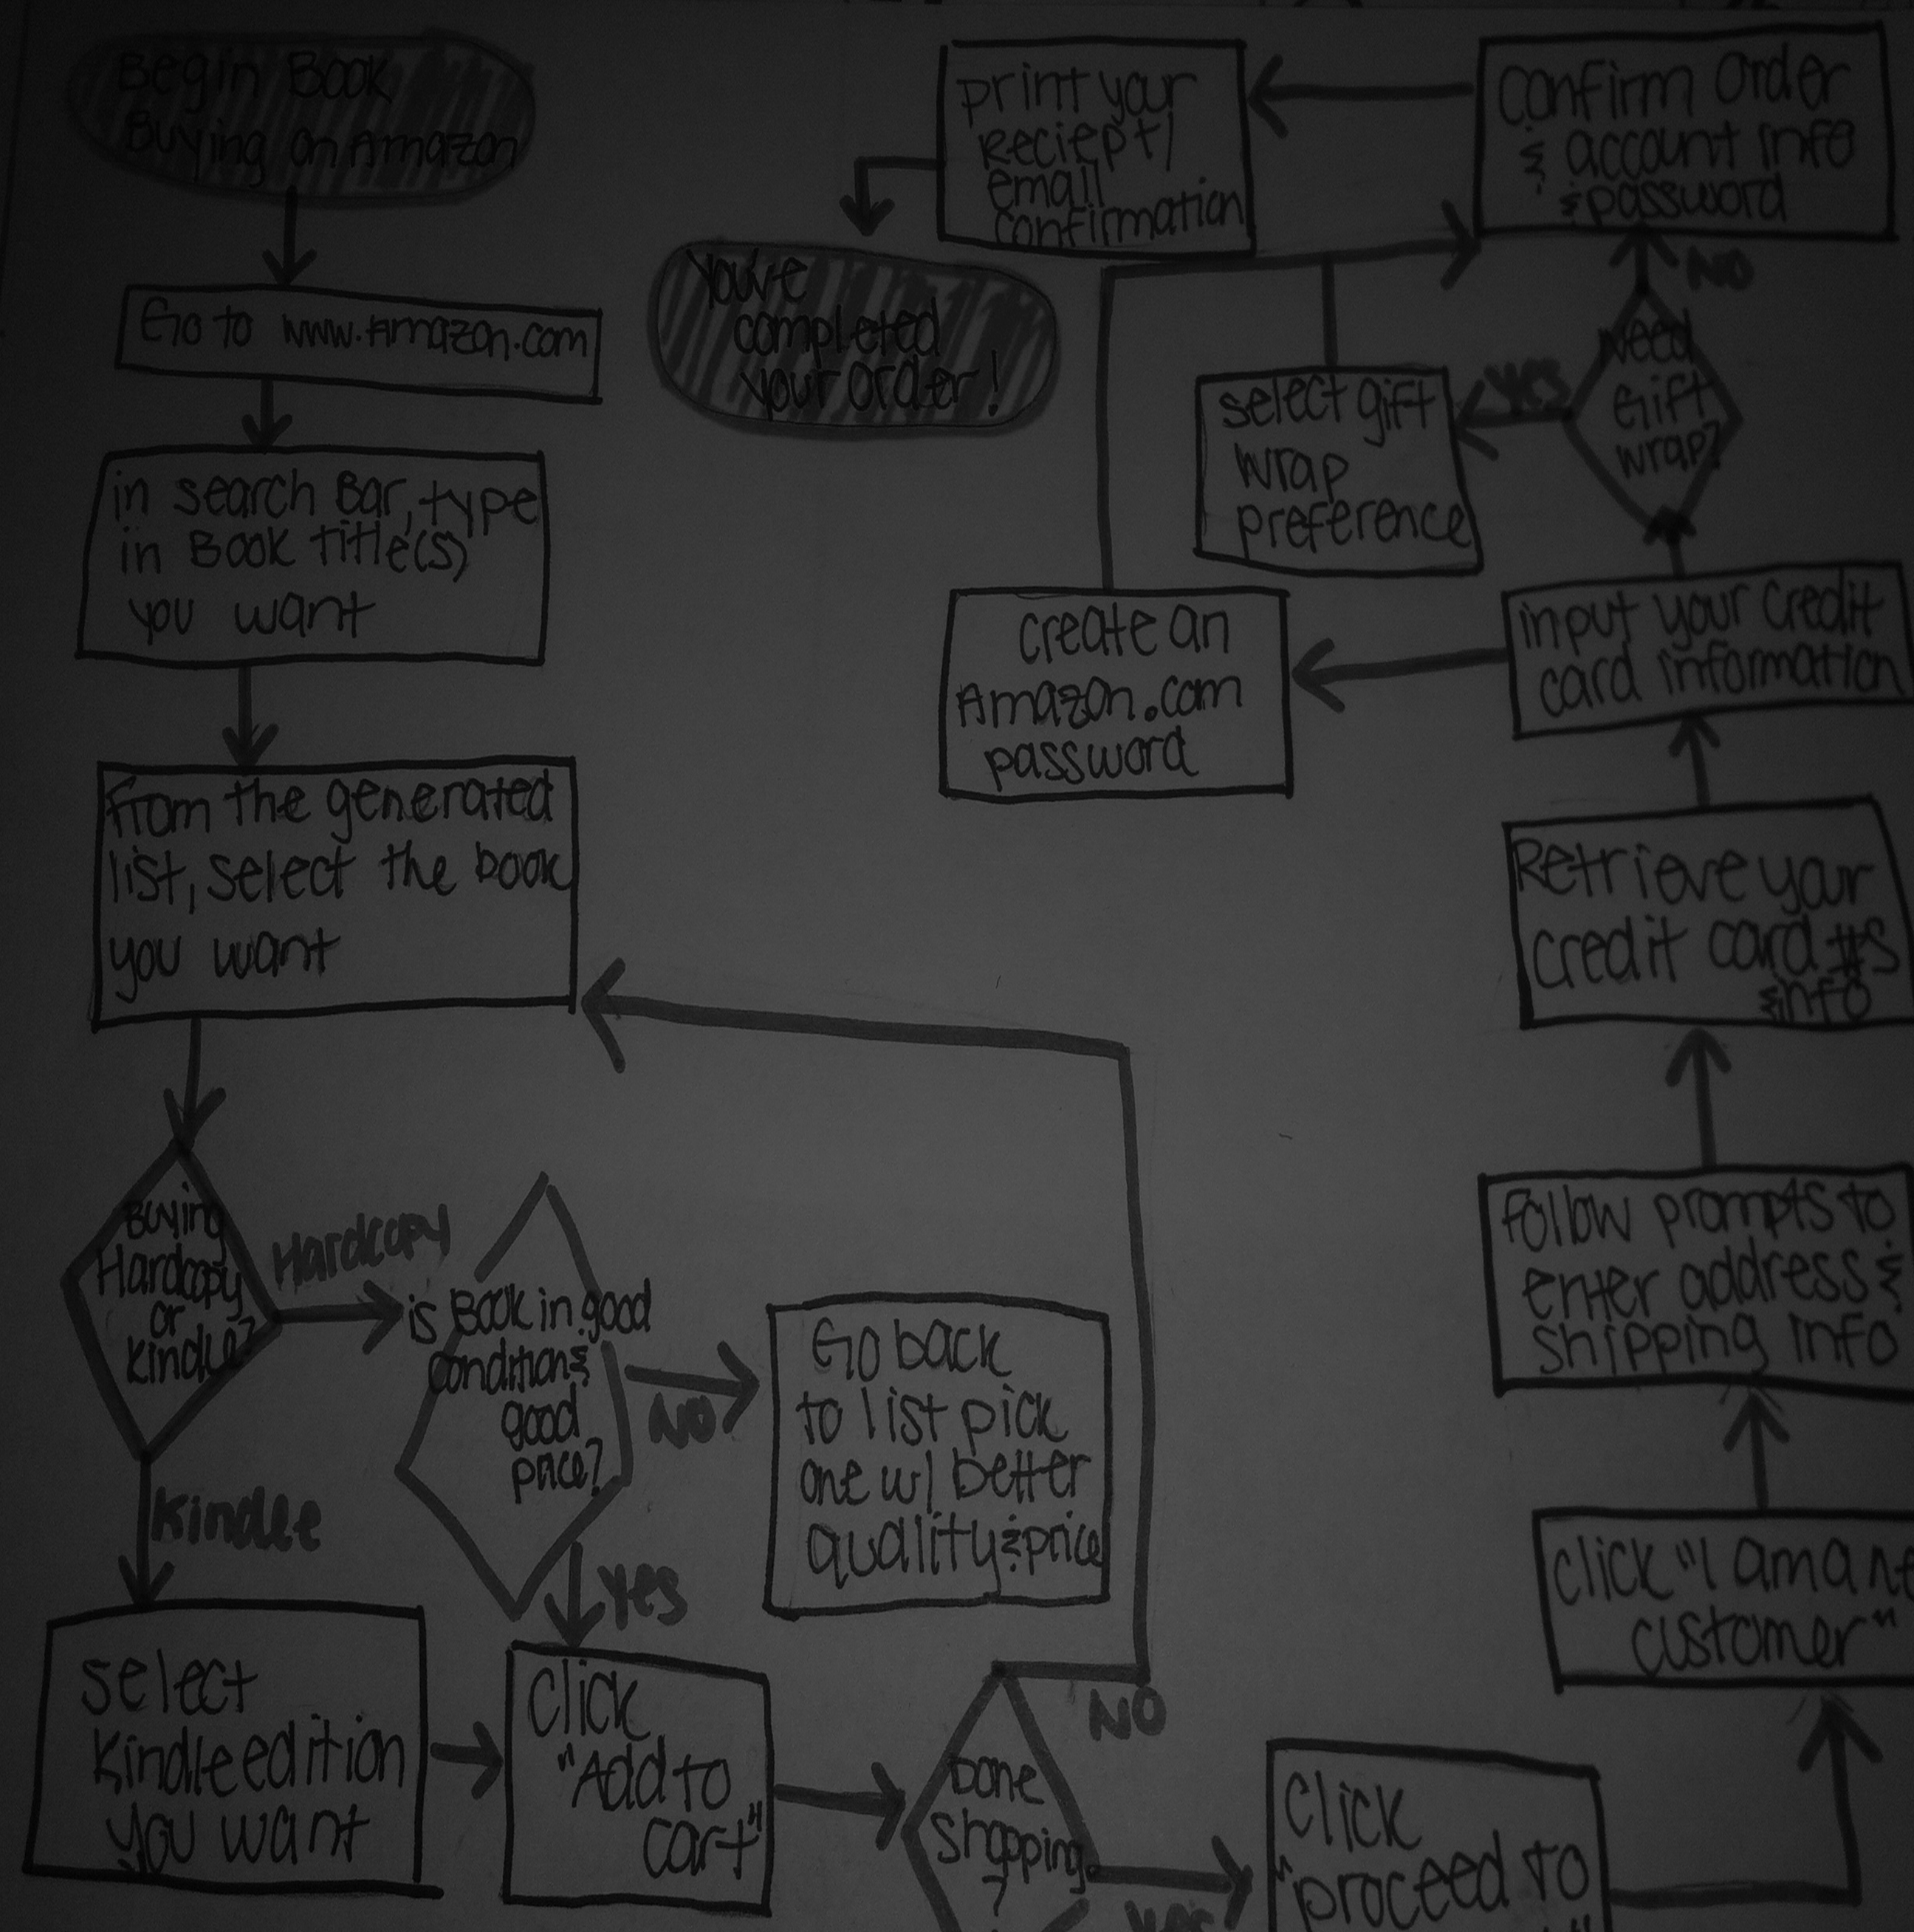 Begin Book
Buying on Amazon
Go to www.Amazon.com
in search Bar, type
in Book title(s)
you want
From the generated
list, select the book
you want
Buying
Hardcopy
or
Kindle?
Hardcopy
Kindle
is Book in good
condition &
good
price?
NO
Yes
Go back
to list pick
one w/ better
quality & price
select
Kindle edition
you want
Click
"Add to
cart"
Done
Shopping
?
NO
Yes
Click
"proceed to
click "I am a ne
customer"
Follow prompts to
enter address &
shipping info
Retrieve your
credit card #s
& info
input your credit
card information
create an
Amazon.com
password
Need
Gift
wrap?
Yes
NO
select gift
wrap
preference
Confirm Order
& account info
& password
print your
Reciept/
email
confirmation
You've
completed
your order!